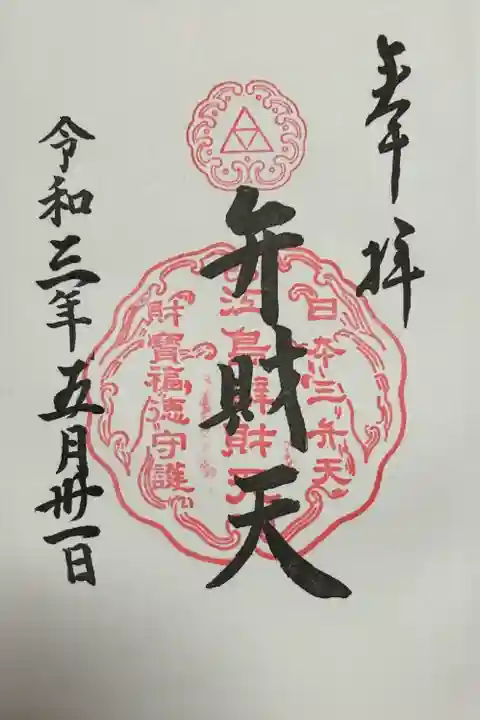 奉拝
日本三弁天
江島辨財天
財寶福徳守護
弁財天
令和三年五月卅一日